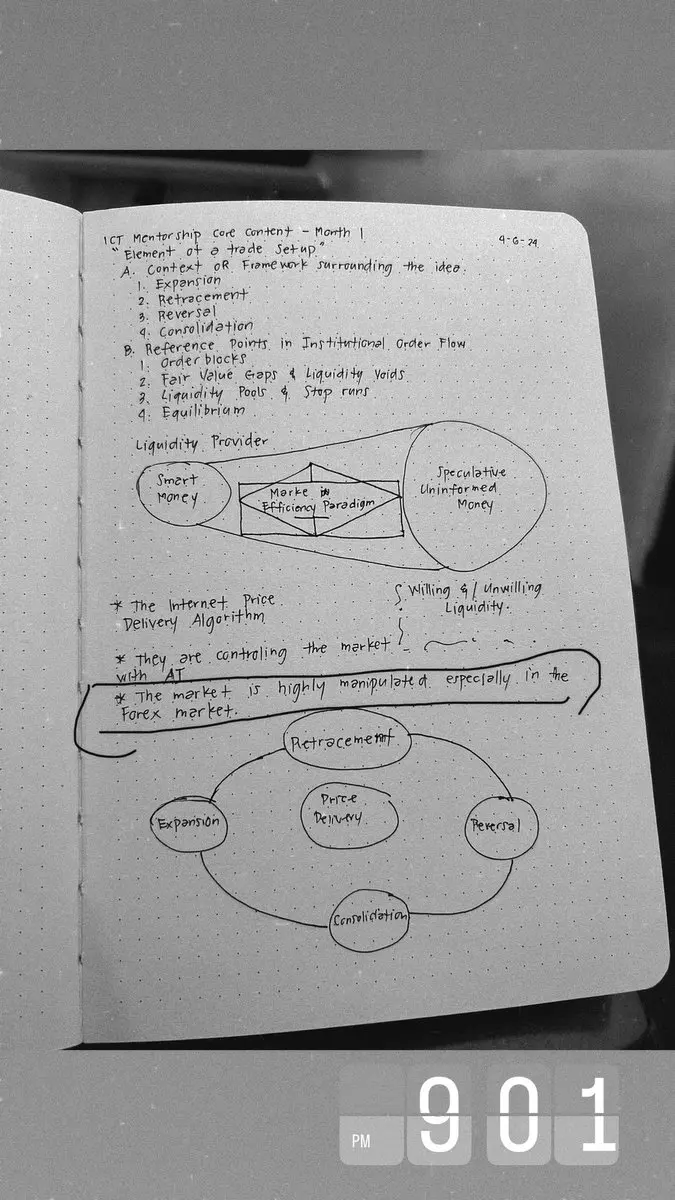 ICT Mentorship Core Content - Month 1
4-6-24
"Element of a trade setup"
A. Context OR Framework surrounding the idea.
1. Expansion
2. Retracement
3. Reversal
4. Consolidation
B. Reference Points in Institutional Order Flow
1. Order blocks
2. Fair Value Gaps & Liquidity Voids
3. Liquidity Pools & Stop runs
4. Equilibrium
Liquidity Provider
Smart
Money
Marke
Efficiency Paradigm
Speculative
Uninformed
Money
Willing &/ Unwilling
Liquidity.
* The Internet Price
Delivery Algorithm
* They are controling the market
with AT
* The market is highly manipulated especially in the
Forex market.
Retracement
Expansion
Price
Delivery
Reversal
Consolidation
PM 9 0 1